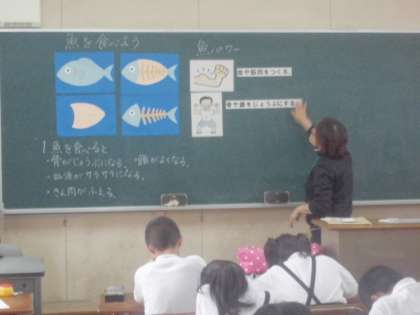 魚を食べよう
魚パワー
血や筋肉をつくる。
骨や歯をじょうぶにする。
魚を食べると
・骨がじょうぶになる。・頭がよくなる。
・血液がサラサラになる。
・きん肉がふえる。